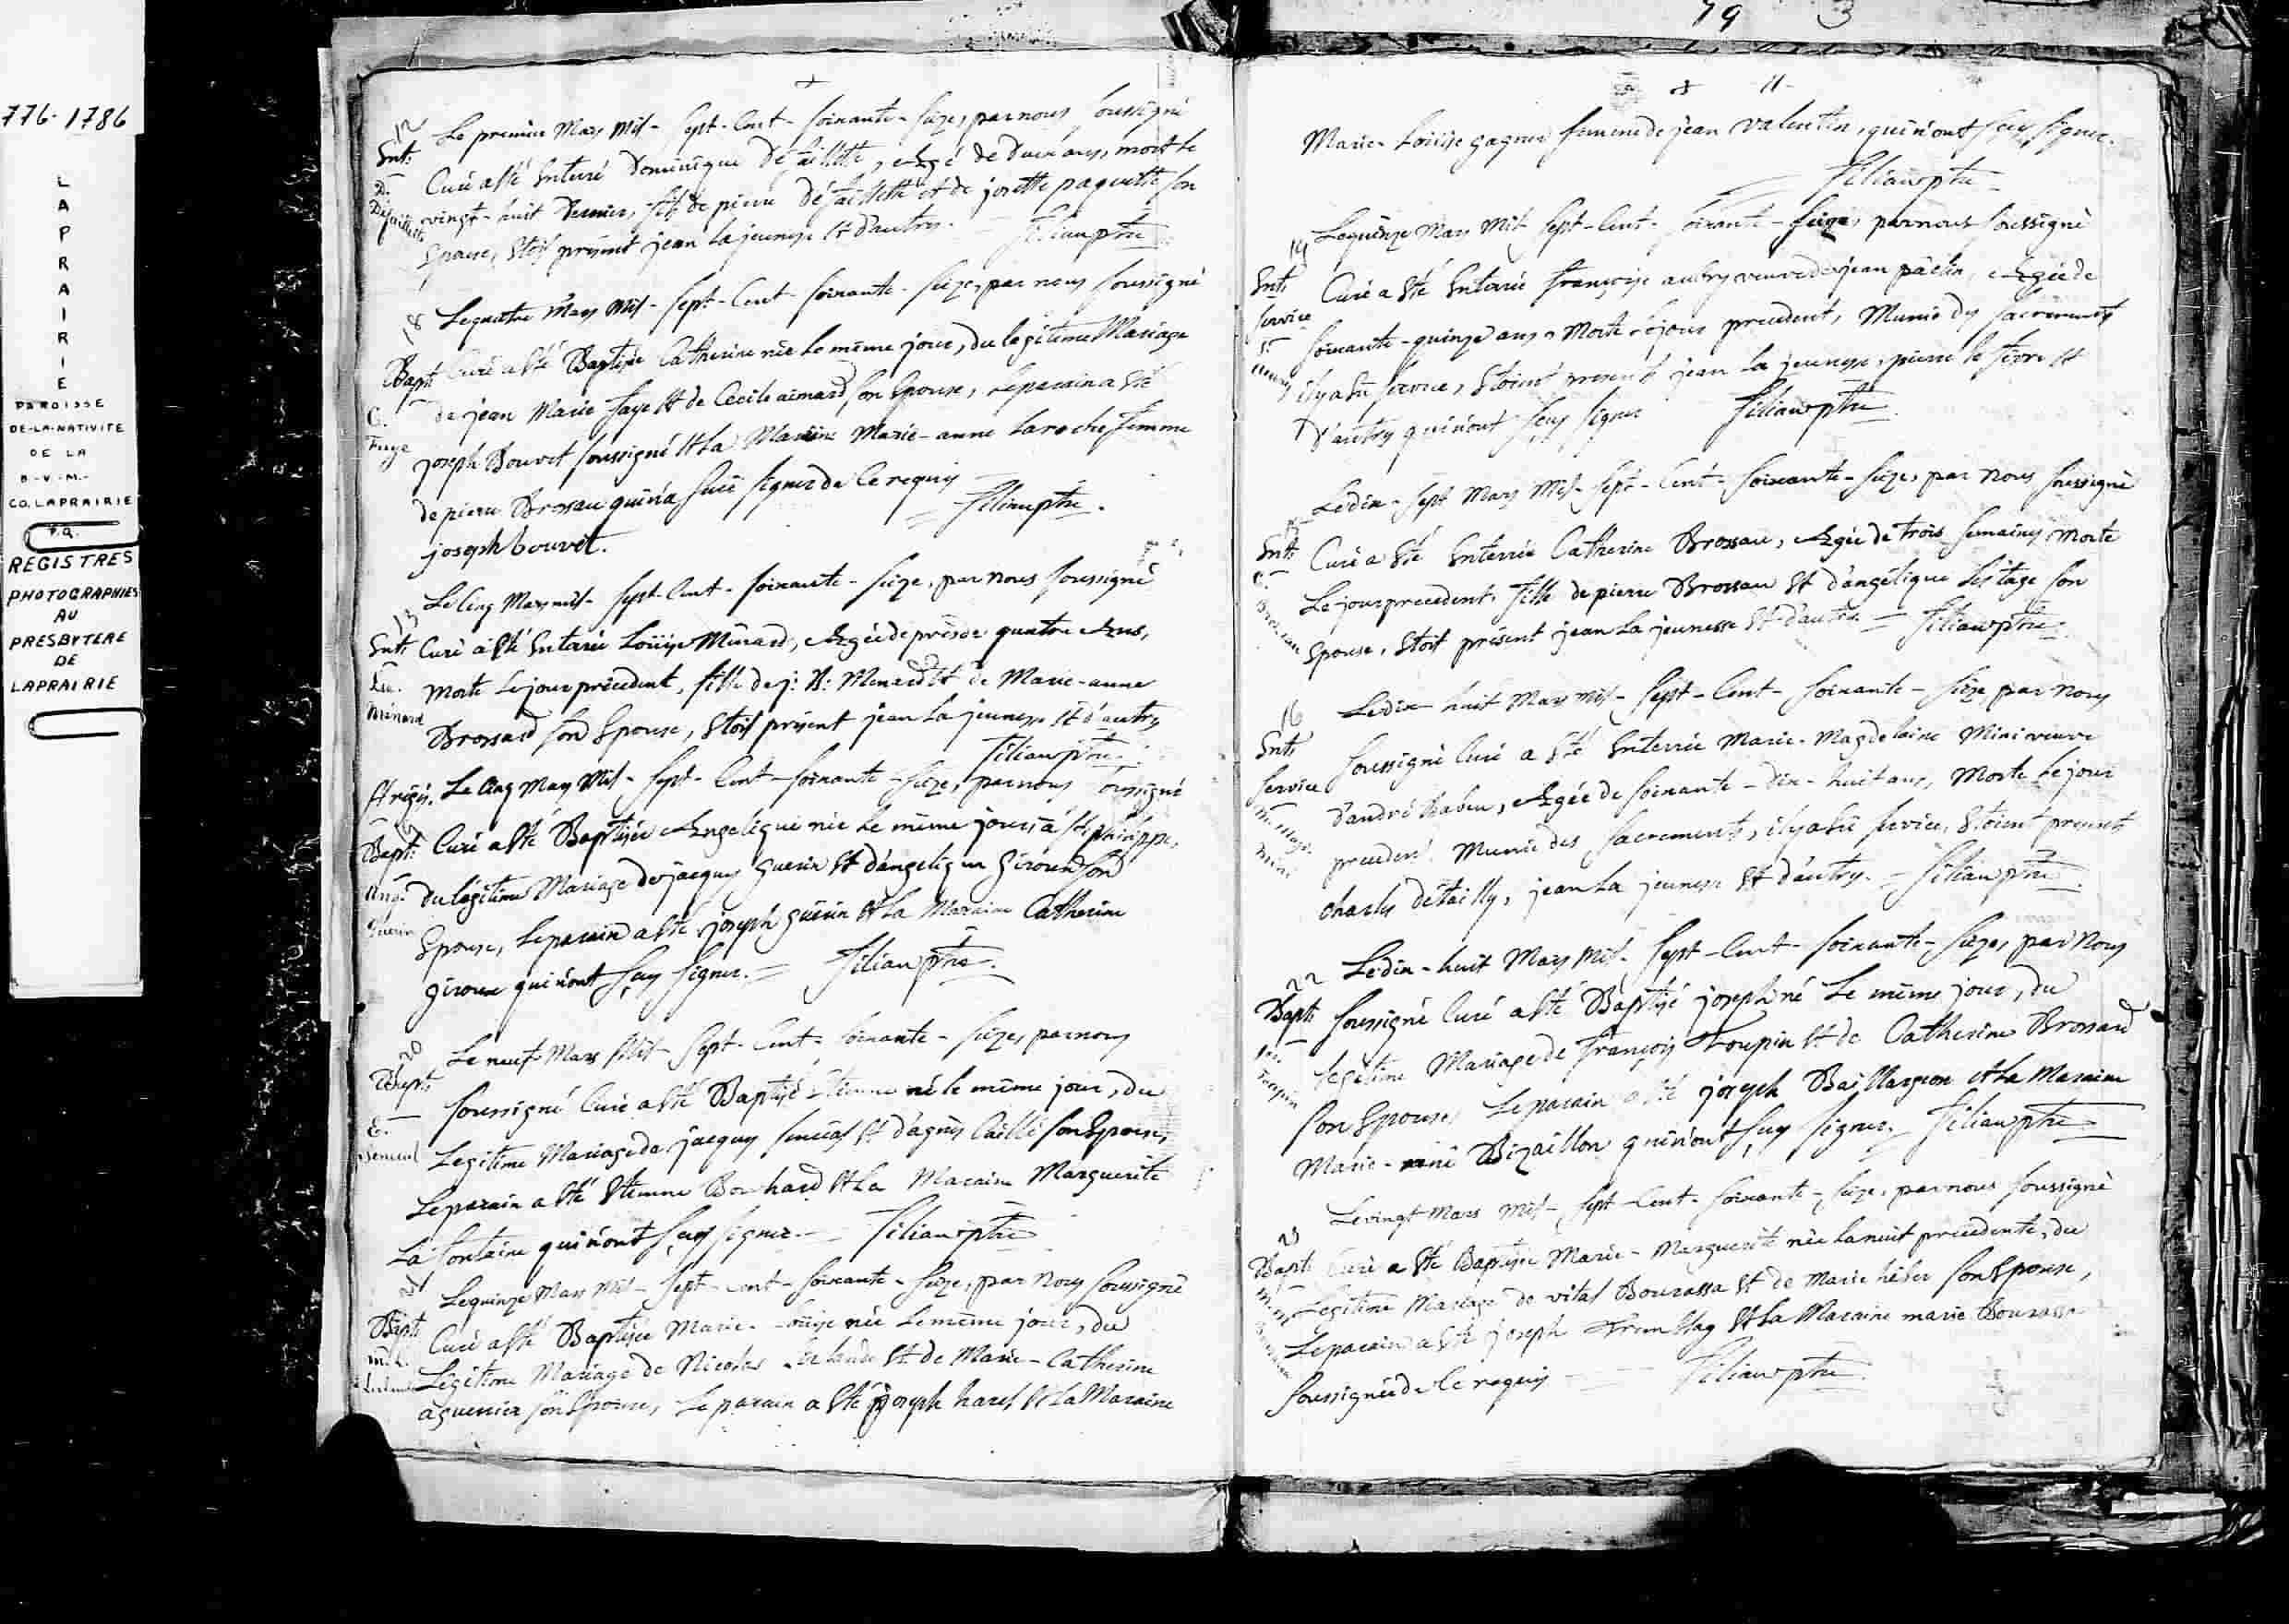 776-1786
LAPRAIRIE
PAROISSE
DE-LA-NATIVITE
DE LA
B-V-M-
CO. LAPRAIRIE
P.Q.
REGISTRES
PHOTOGRAPHIES
AU
PRESBYTERE
DE
LAPRAIRIE
12
Ent:
D:
Le premier Mars Mil-Sept-Cent-Soixante-Seize, par nous Soussigné
Curé a Eté Enterré Dominique Défaillette, Agé de Deux ans, mort le
vingt-huit Dernier, fils de pierre Défaillette et de josette paquette son
Epouse, Etoit présent jean La jeunesse Et d'autres. Filiau ptre
18
Bapt:
C.
Faye
Le quatre Mars Mil-Sept-Cent-Soixante-Seize, par nous Soussigné
Curé a Eté Baptisée Catherine née Le même jour, du legitime Mariage
de jean Marie faye Et de Cecile aimard Son Epouse, Le parain a Eté
joseph Bouvet soussigné Et La Maraine Marie-anne Laroche femme
de pierre Brosseau qui n'a Sceu signer de Ce requis
joseph bouvet. = Filiau ptre.
13
Ent:
Lse.
Ménard
Le Cinq Mars mil-Sept-Cent-Soixante-Seize, par nous Soussigné
Curé a Eté Enterrée Loüise Ménard, Agée de près de quatre Ans,
Morte Le jour précedent, fille de j: B: Menard Et de Marie-anne
Brossard Son Epouse, Etoit présent jean La jeunesse Et d'autres
Filiau ptre.
Bapt:
Ang:
Guerin
Le Cinq Mars Mil-Sept-Cent-Soixante-Seize, par nous Soussigné
Curé a Eté Baptisée Angelique née Le même jour, à St philippe,
du légitime Mariage de jacques Guerin Et d'angelique Giroux Son
Epouse, Le parain a Eté joseph Guérin Et La Maraine Catherine
Giroux qui n'ont Sçu Signer. = Filiau ptre.
20
Bapt:
E.
Seneca
Le neuf Mars Mil-Sept-Cent-Soixante-Seize, par nous
Soussigné Curé a Eté Baptisé Etienne né le même jour, du
Legitime Mariage de jacques Senécal Et d'agnès Caillé Son Epouse,
Le parain a Eté Etienne Bouchard Et La Maraine Marguerite
La fontaine qui n'ont Sçu signer. = Filiau ptre
21
Bapt:
m. L.
Le quinze Mars Mil-Sept-Cent-Soixante-Seize, par nous Soussigné
Curé a Eté Baptisée Marie-Loüise née Le même jour, du
Légitime Mariage de Nicolas Et de Marie-Catherine
aguenier Son Epouse, Le parain a Eté joseph harel Et La Maraine
79 3
11-
Marie-Loüise gagner femme de jean Valentin, qui n'ont Sçu Signer.
Filiau ptre
14
Ent:
Service
Le quinze Mars Mil-Sept-Cent-Soixante-Seize, par nous Soussigné
Curé a Eté Enterrée françoise aubry veuve de jean pâtin, Agée de
Soixante-quinze ans, Morte Le jour precedent, Munie des Sacrements
il y a Eu Service, Etoient presents jean La jeunesse, pierre le fevre Et
D'autres qui n'ont Sçu Signer Filiau ptre
15
Ent:
C:
Brosseau
Le dix-Sept Mars Mil-Sept-Cent-Soixante-Seize, par Nous Soussigné
Curé a Eté Enterrée Catherine Brosseau, Agée de trois Semaines, Morte
Le jour precedent, fille de pierre Brosseau Et d'angélique Lestage Son
Epouse, Etoit présent jean La jeunesse Et d'autres. = Filiau ptre
16
Ent:
Service
Le dix-huit Mars mil-Sept-Cent-Soixante-Seize, par Nous
Soussigné Curé a Eté Enterrée Marie-Magdelaine Mini veuve
d'andré Babeu, Agée de Soixante-dix-huit ans, Morte Le jour
precedent Munie des Sacrements, il y a Eu Service, Etoient presents
charles détailly, jean La jeunesse Et d'autres. = Filiau ptre
22
Bapt:
Le dix-huit Mars Mil-Sept-Cent-Soixante-Seize, par Nous
Soussigné Curé a Eté Baptisé joseph né Le même jour, du
legitime Mariage de françois Toupin Et de Catherine Brossard
Son Epouse, Le parain a Eté joseph Baillargeon Et La Maraine
Marie-réné Bizaillon qui n'ont Sçu Signer. Filiau ptre
23
Bapt:
Le vingt Mars Mil-Sept-Cent-Soixante-Seize, par nous Soussigné
Curé a Eté Baptisée Marie-Marguerite née La nuit precedente, du
Legitime Mariage de vital Bourassa Et de Marie héber Son Epouse,
Le parain a Eté joseph Tremblay Et La Maraine marie Bourassa
Soussignée de Ce requis = Filiau ptre